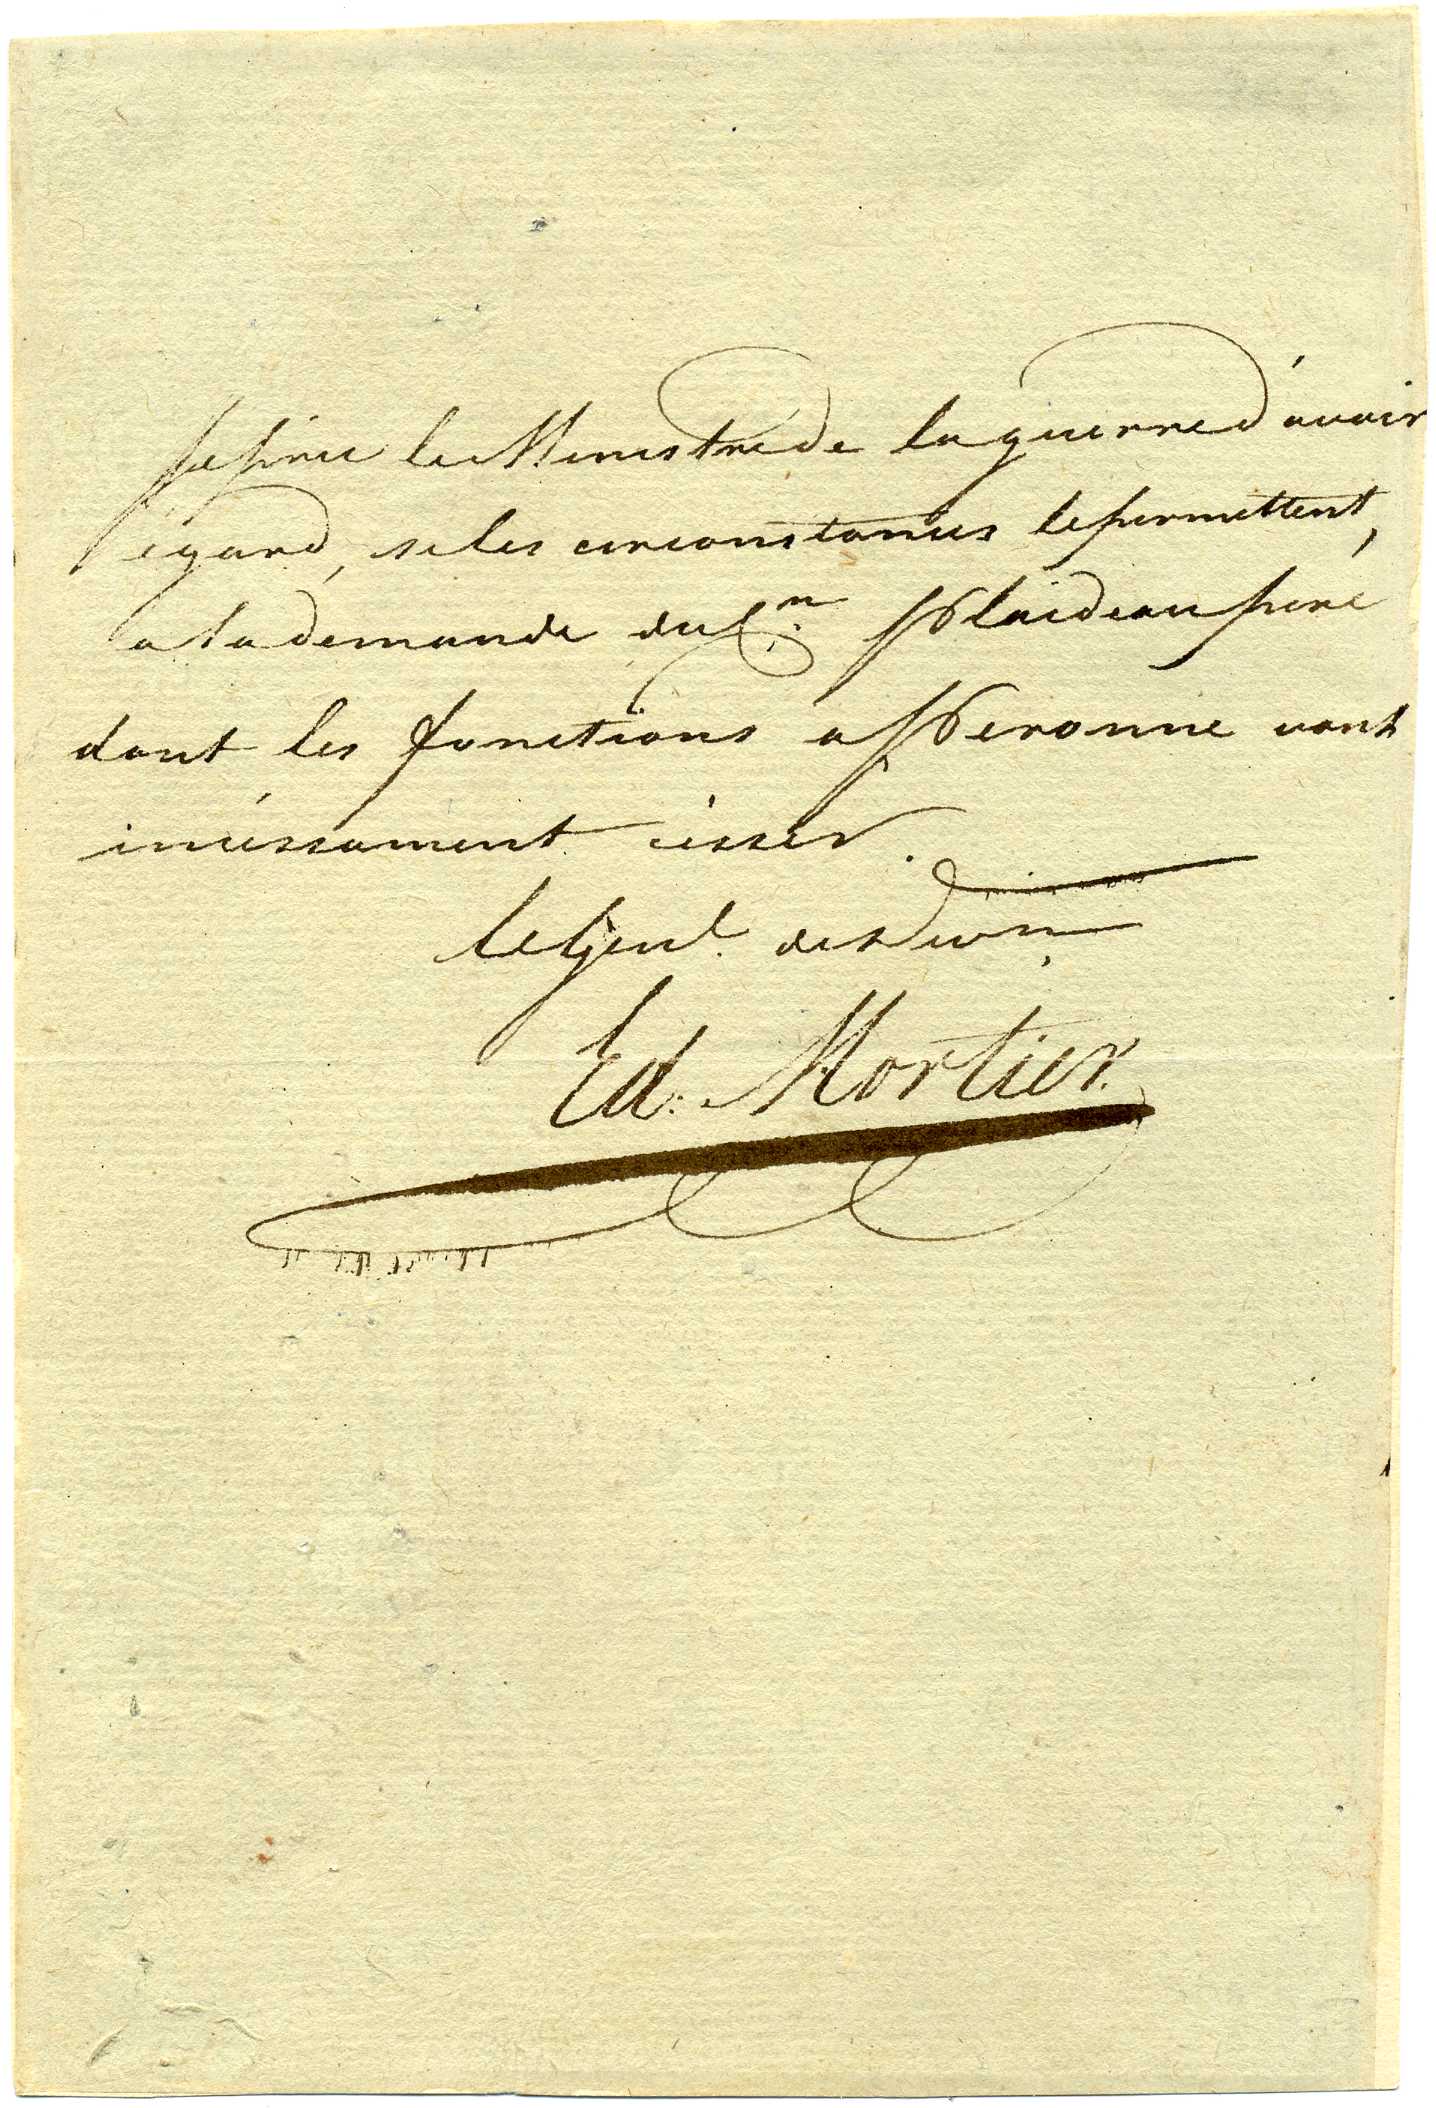 Je prie le Ministre de la guerre d'avoir
égard, si les circonstances le permettent,
a la demande du Cn. Plaideau pere
dont les fonctions a Peronne vont
incéssament cesser.
le Génl. de Don
Ed: Mortier.